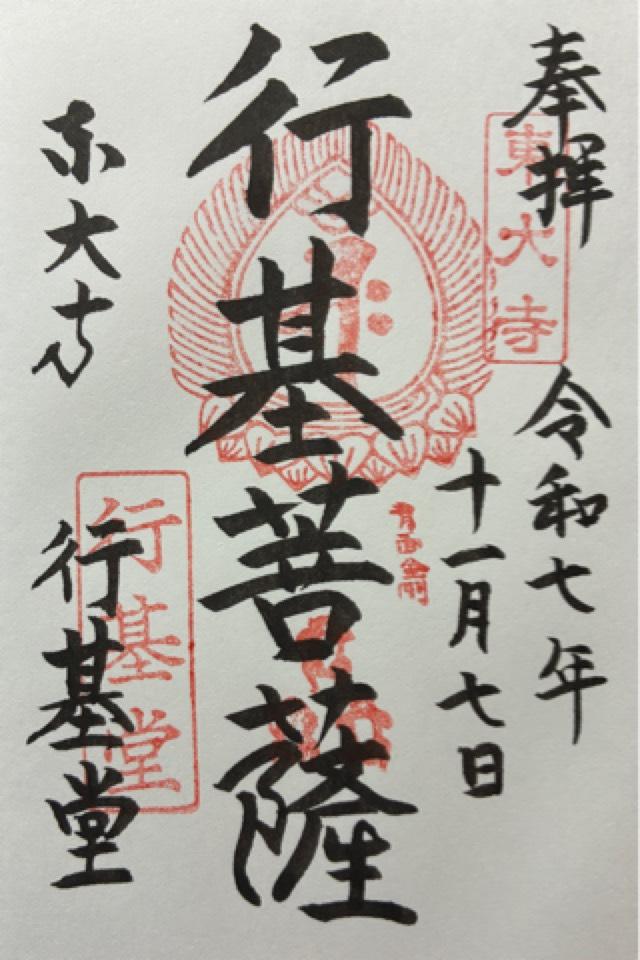 奉拝
東大寺
令和七年
十一月七日
行基菩薩
青面金剛
東大寺
行基堂
行基堂